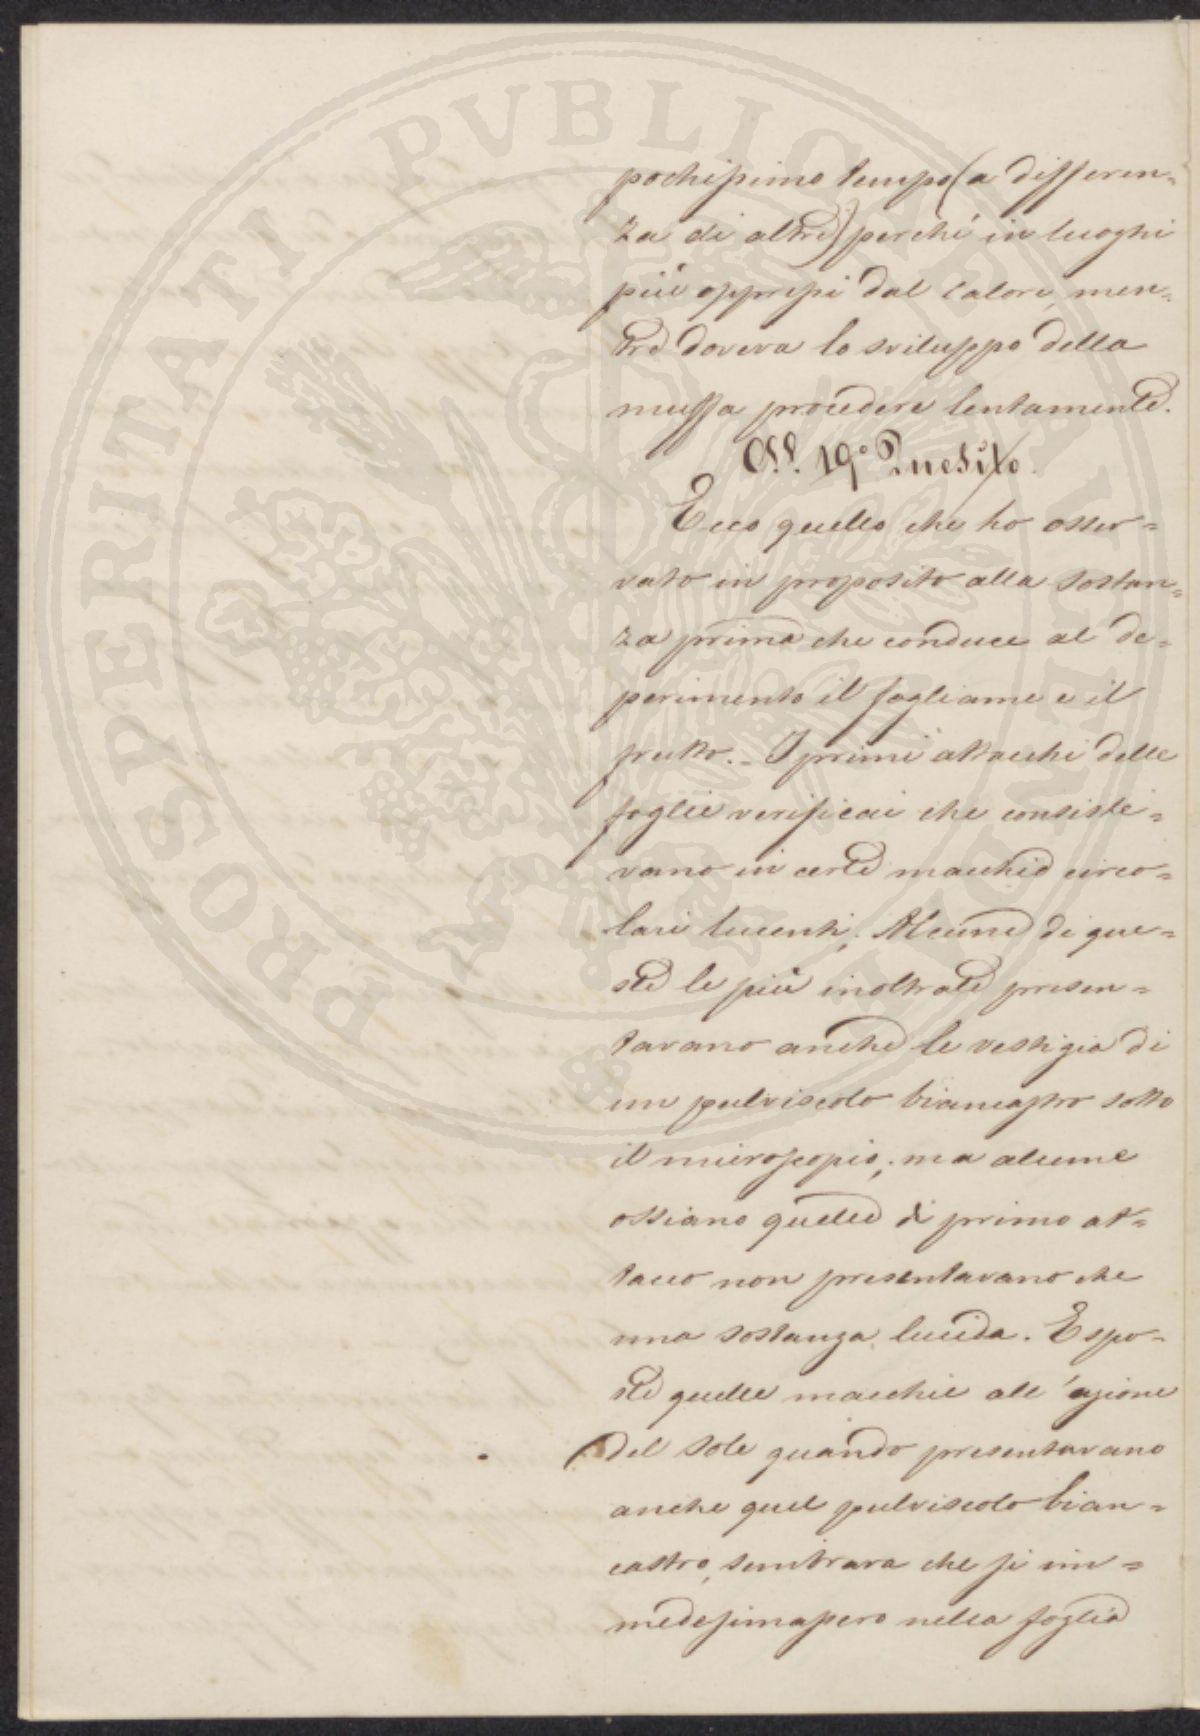 PROSPERITATI PVBLICAE
pochissimo tempo (a differen=
za di altre) perchè in luoghi
più oppressi dal calore, men=
tre doveva lo sviluppo della
muffa procedere lentamente.
19° Quesito.
Ecco quello che ho osser=
vato in proposito alla sostan=
za prima che conduce al de=
perimento il fogliame e il
frutto. - I primi attacchi delle
foglie verificai che consiste=
vano in certe macchie circo=
lari lucenti; Alcune di que=
ste le più inoltrate presen=
tavano anche le vestigia di
un pulviscolo biancastro sotto
il microscopio; ma alcune
ossiano quelle di primo at=
tacco non presentavano che
una sostanza lucida. Espo=
ste quelle macchie all'azione
del sole quando presentavano
anche quel pulviscolo bian=
castro, sembrava che si im=
medesimassero nella foglia